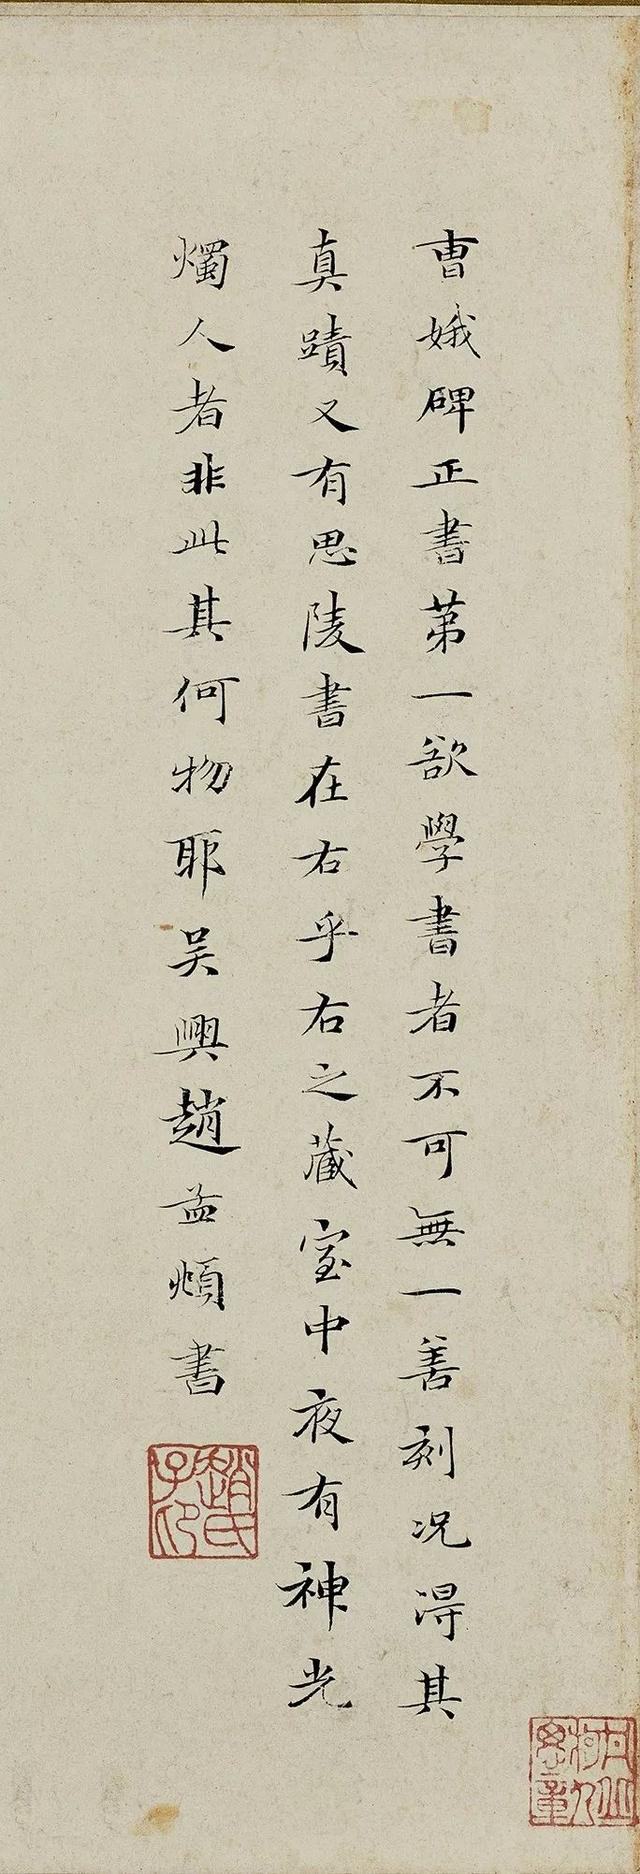 曺娥碑正書苐一欲學書者不可無一善刻况得其
真蹟又有思陵書在右乎右之藏室中夜有神光
燭人者非此其何物耶吴興趙孟頫書
趙氏子印